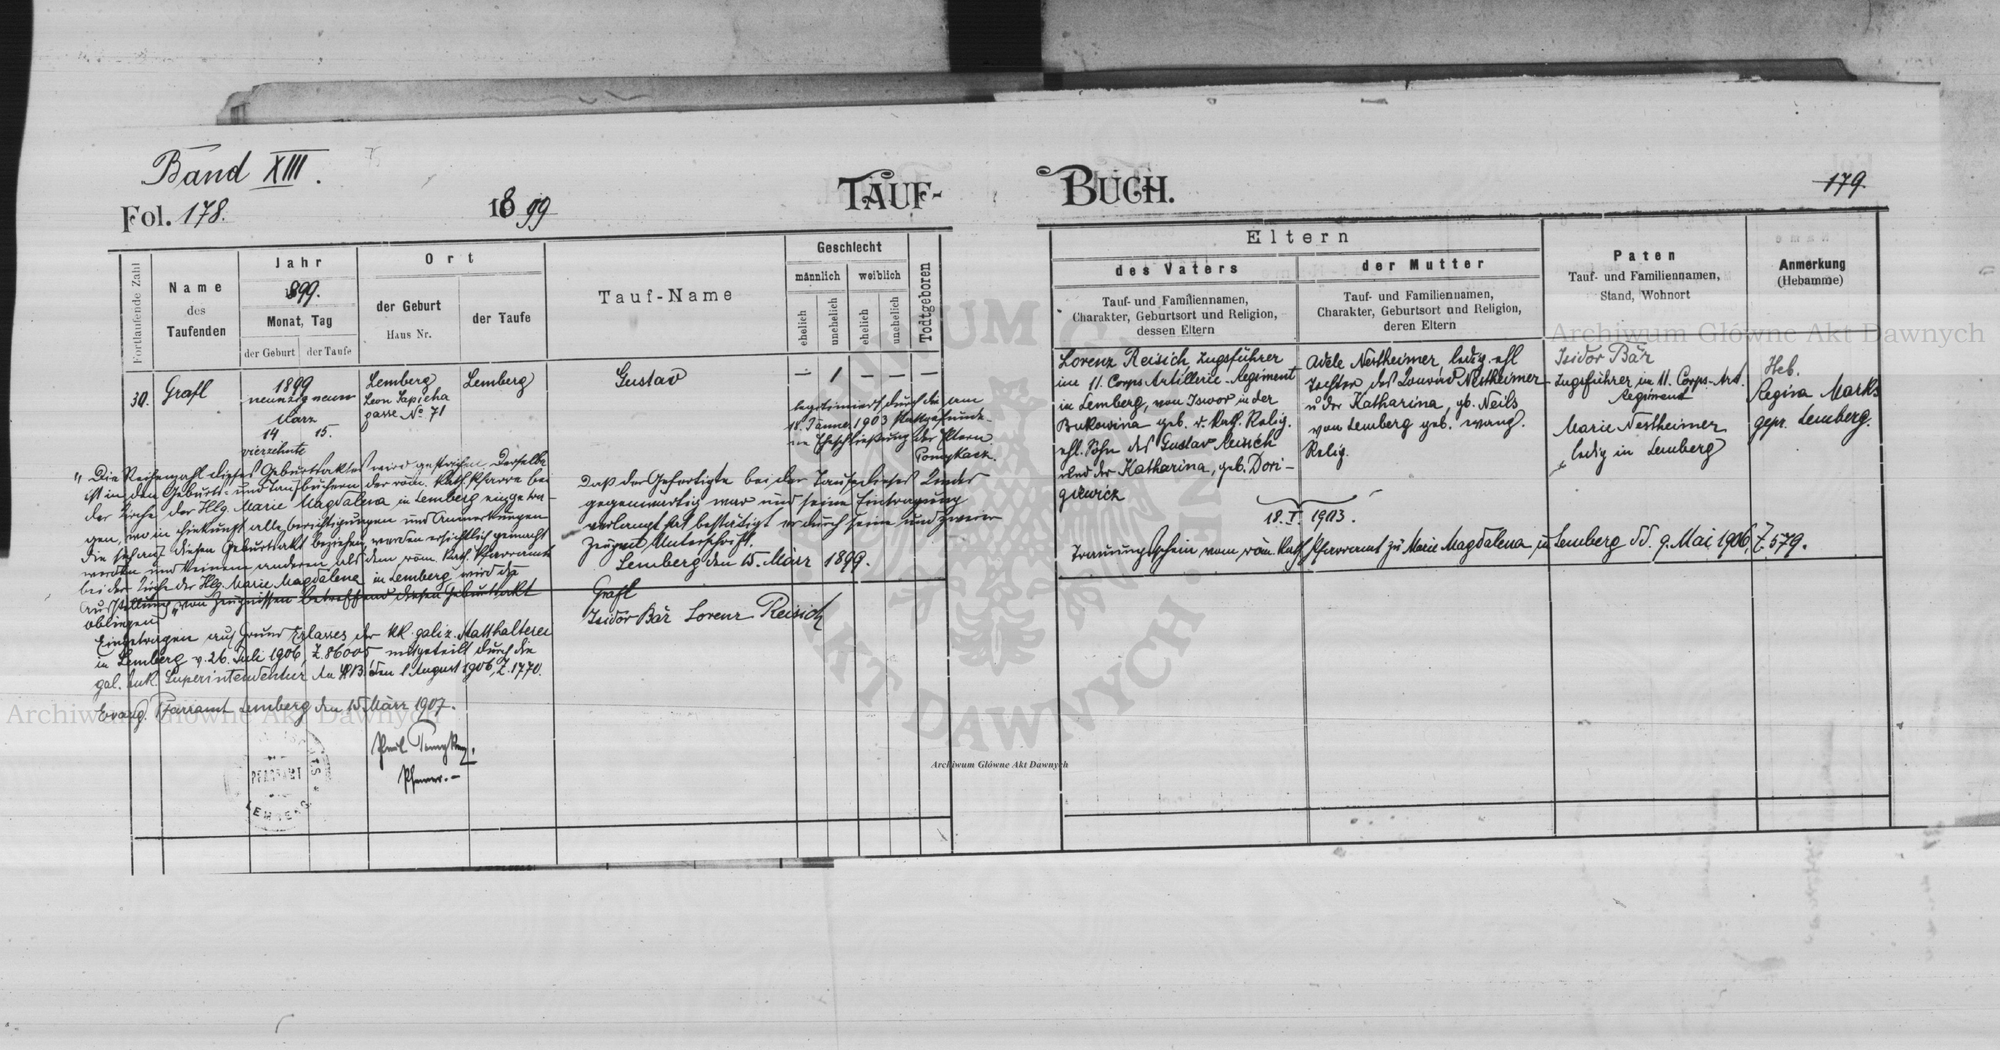 Band XIII.
Fol. 178.
1899
TAUF-
BUCH.
179.
Fortlaufende Zahl
Name
des
Taufenden
Jahr
899.
Monat, Tag
der Geburt
der Taufe
Ort
der Geburt
Haus Nr.
der Taufe
Tauf-Name
Geschlecht
männlich
weiblich
ehelich
unehelich
ehelich
unehelich
Todtgeboren
Eltern
des Vaters
Tauf- und Familiennamen,
Charakter, Geburtsort und Religion,
dessen Eltern
der Mutter
Tauf- und Familiennamen,
Charakter, Geburtsort und Religion,
deren Eltern
Paten
Tauf- und Familiennamen,
Stand, Wohnort
Anmerkung
(Hebamme)
30.
Grafl
1899
neunzig neun
März
14 15.
vierzehnte
Lemberg
Leon Sapieha
gasse No 71
Lemberg
Gustav
— 1 — — —
legitimiert durch die am
18. Jänner 1903 stattgefunde-
ne Eheschließung der Eltern.
Daß der Gefertigte bei der Taufe dieses Kindes
gegenwärtig war und seine Eintragung
verlangt hat bestätigt er durch seine und zweier
Zeugen Unterschrift.
Lemberg den 15. März 1899.
Grafl
Isidor Bär Lorenz Reisich
Lorenz Reisich Zugsführer
im 11. Corps Artillerie-Regiment
in Lemberg, von Iswor in der
Bukowina geb. r. kath. Relig.
ehl. Sohn des Gustav Reisich
und der Katharina, geb. Dori-
Adele Nestheimer, ledig. ehl
Tochter des Konrad Nestheimer
u der Katharina, gb. Neils
von Lemberg geb. evang.
Relig.
18. I. 1903.
Trauungsschein vom röm. Kath. Pfarramt zu Marie Magdalena, in Lemberg dd. 9. Mai 1906, Z. 579.
Isidor Bär
Zugsführer in 11. Corps-Art.
Regiment
Marie Nestheimer
ledig in Lemberg
Heb.
Regina Marks
gepr. Lemberg.
"Die Reihenzahl dieses Geburtsaktes wird gestrichen. Derselbe
ist in den Geburts- und Taufbüchern der röm. Kath. Pfarre bei
der Kirche der Hlg. Marie Magdalena in Lemberg eingetra-
gen, wo in Hinkunft alle berichtigungen und Anmerkungen
die sich auf diesen Geburtsakt beziehen, werden ersichtlich gemacht
werden und keinem anderen als dem röm. Kath. Pfarramte
bei der Kirche der Hlg. Marie Magdalena in Lemberg wird die
Ausstellung von Zeugnissen betreffend diesen Geburtsakt
obliegen"
Eingetragen auf Grund Erlasses der kk. galiz. Statthalterei
in Lemberg v. 26. Juli 1906, Z. 86005 mitgeteilt durch die
gal. buk. Superintendentur A. u. HB. den 1 August 1906, Z. 1770.
Evang. Pfarramt Lemberg den 15 März 1907.
Pfarrer.—
PFARRAMT
LEMBERG
Archiwum Główne Akt Dawnych
Archiwum Główne Akt Dawnych
Archiwum Główne Akt Dawnych